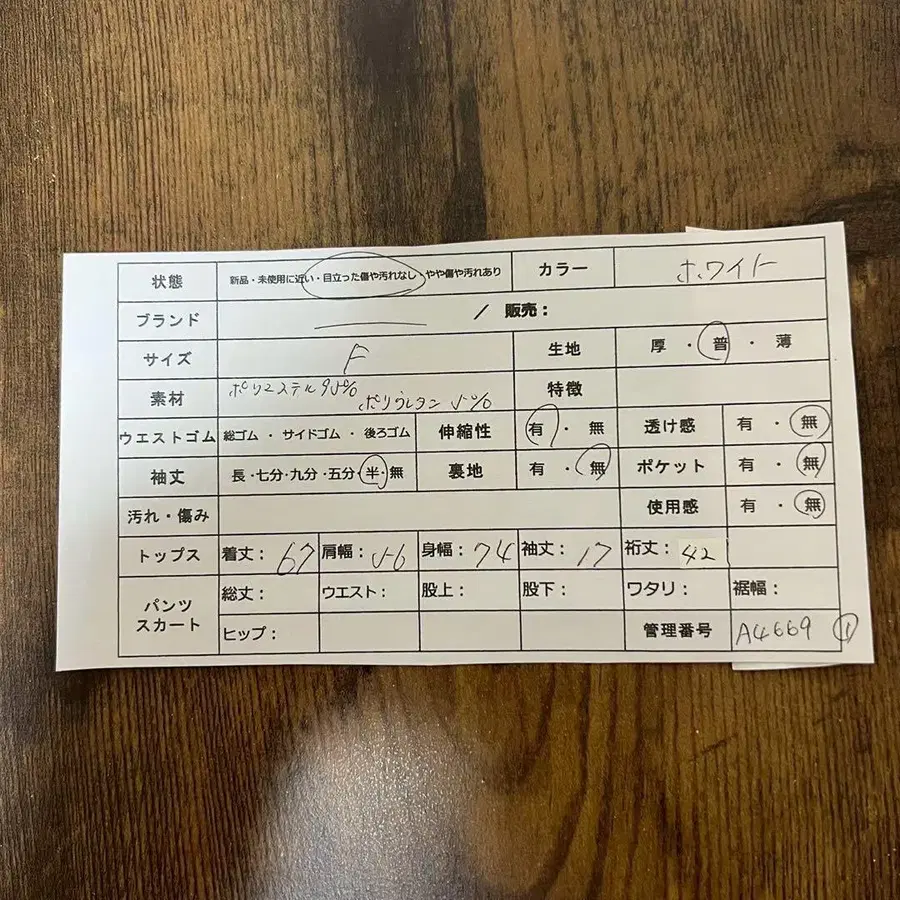 状態 新品・未使用に近い・目立った傷や汚れなし・やや傷や汚れあり カラー ホワイト
ブランド / 販売：
サイズ F 生地 厚・普・薄
素材 ポリエステル95% ポリウレタン5% 特徴
ウエストゴム 総ゴム・サイドゴム・後ろゴム 伸縮性 有・無 透け感 有・無
袖丈 長・七分・九分・五分・半・無 裏地 有・無 ポケット 有・無
汚れ・傷み 使用感 有・無
トップス 着丈：67 肩幅：56 身幅：74 袖丈：17 裄丈：42
パンツ スカート 総丈： ウエスト： 股上： 股下： ワタリ： 裾幅：
ヒップ： 管理番号 A4669 ①